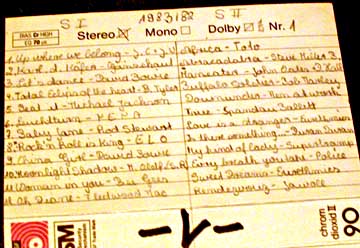 S I 1983/82 S II
BIAS HIGH EQ 70 µs Stereo Mono Dolby Nr. 1
1. Up where we belong - J.C.+J.W.
2. Karl d. Käfer - Gänsehaut
3. Let's Dance - David Bowie
4. Total Eclipse of the heart - B. Tyler
5. Beat it - Michael Jackson
6.
7. Baby Jane - Rod Stewart
8. Rock'n Roll is King - E L O
9. China Girl - David Bowie
10. Moonlight Shadow - M. Oldf.
11. Woman in you - Bee Gees
12. Oh Diane - Fleetwood Mac
Africa - Toto
Abracadabra - Steve Miller B.
Maneater - John Oates, D. Hall
Buffalo Soldier - Bob Marley
Down under - Men at work
True - Spandau Ballett
Love is a stranger - Eurythmics
There something - Duran Duran
My kind of Lady - Supertramp
Every breath you take - Police
Sweet Dreams - Eurythmics
Rendezvous -
BASF
chrom dioxid II
90